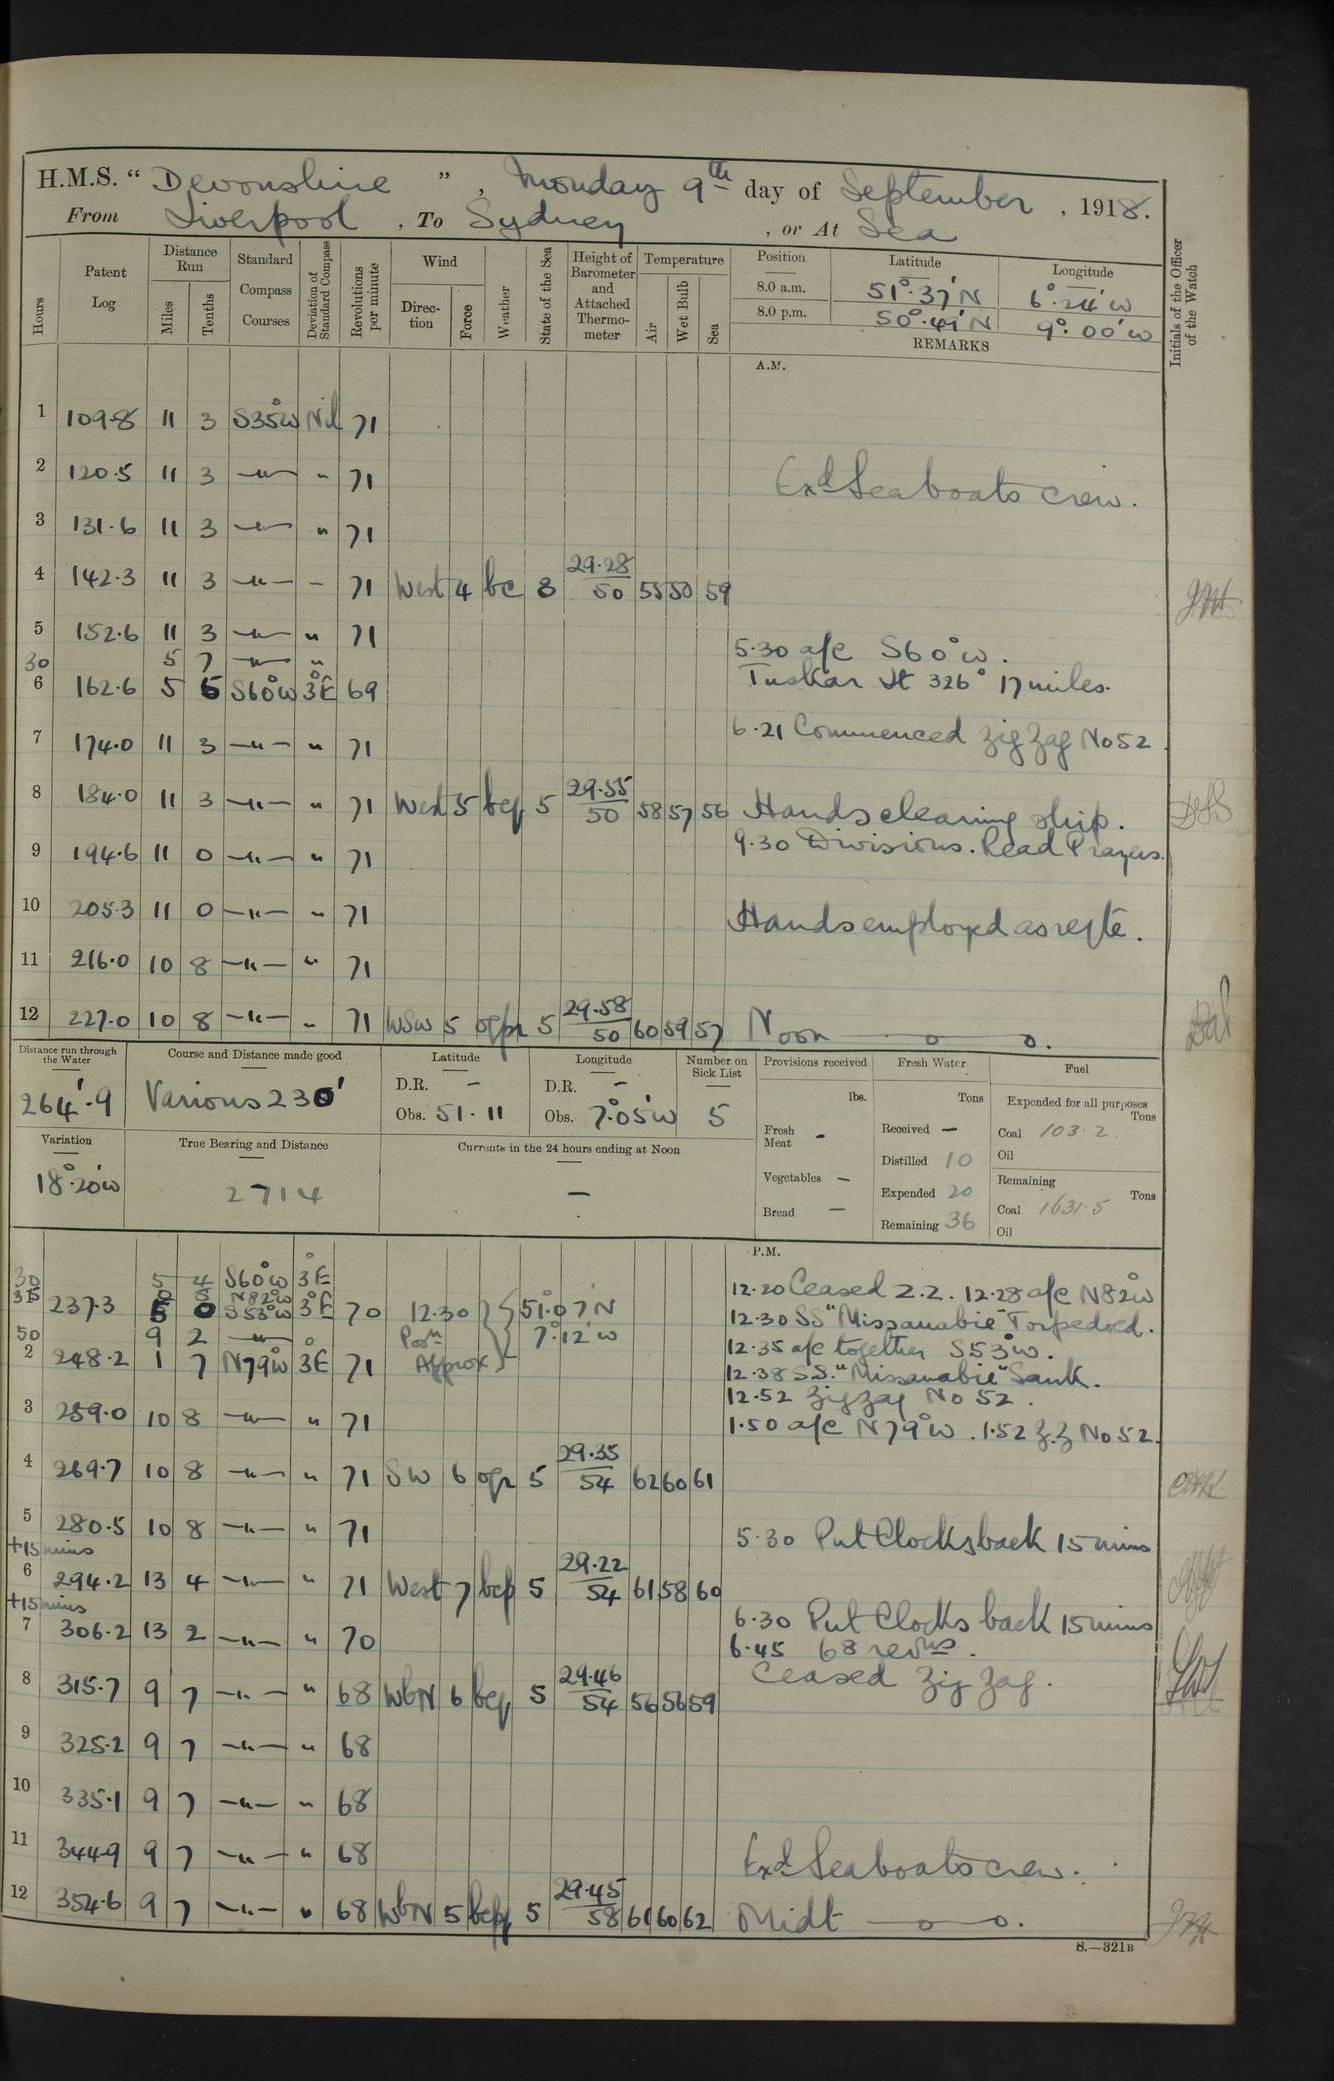 H.M.S. “ Devonshire ” , Monday 9th day of September , 1918.
From Liverpool , To Sydney , or At Sea
Hours
Patent Log
Distance Run
Miles
Tenths
Standard Compass Courses
Deviation of Standard Compass
Revolutions per minute
Wind
Direction
Force
Weather
State of the Sea
Height of Barometer and Attached Thermometer
Temperature
Air
Wet Bulb
Sea
Position Latitude Longitude
8.0 a.m. 51°.37'N 6°.24'W
8.0 p.m. 50°.49'N 9°.00'W
REMARKS
Initials of the Officer of the Watch
A.M.
1 109.8 11 3 S35°W Nil 71
2 120.5 11 3 —"— " 71 Exd Seaboats crew.
3 131.6 11 3 —"— " 71
4 142.3 11 3 —"— - 71 West 4 bc 3 29.28/50 55 50 59
5 152.6 11 3 —"— " 71 5.30 a/c S60°W.
30 5 7 —"— "
6 162.6 5 6 S60°W 3°E 69 Tuskar Lt 326° 17 miles.
7 174.0 11 3 —"— " 71 6.21 Commenced Zig Zag No 52.
8 184.0 11 3 —"— " 71 West 5 bcq 5 29.55/50 58 57 56 Hands cleaning ship.
9 194.6 11 0 —"— " 71 9.30 Divisions. Read Prayers.
10 205.3 11 0 —"— " 71 Hands employed as reqte.
11 216.0 10 8 —"— " 71
12 227.0 10 8 —"— " 71 WSW 5 5 29.58/50 60 59 57 Noon —o—o.
Distance run through the Water 264'.9
Course and Distance made good Various 230'
Latitude D.R. - Obs. 51.11
Longitude D.R. - Obs. 7°.05'W
Number on Sick List 5
Variation 18°.20'W
True Bearing and Distance 2714
Currents in the 24 hours ending at Noon —
Provisions received lbs.
Fresh Meat -
Vegetables -
Bread -
Fresh Water Tons
Received -
Distilled 10
Expended 20
Remaining 36
Fuel
Expended for all purposes Tons
Coal 103.2
Oil
Remaining Tons
Coal 1631.5
Oil
P.M.
30 5 4 S60°W 3°E 12.20 Ceased Z.Z. 12.28 a/c N82°W
35 N82°W
237.3 5 0 S53°W 3°E 70 12.30 Posn Approx } { 51°.07'N 7°.12'W 12.30 SS "Missanabie" Torpedoed.
50 9 2 —"— 12.35 a/c together S53°W.
2 248.2 1 7 N79°W 3°E 71 12.38 S.S. "Missanabie" Sank.
12.52 Zigzag No 52.
3 259.0 10 8 —"— " 71 1.50 a/c N79°W. 1.52 Z.Z No 52.
4 269.7 10 8 —"— " 71 SW 6 5 29.35/54 62 60 61
5 280.5 10 8 —"— " 71 5.30 Put Clocks back 15 mins
+15 mins
6 294.2 13 4 —"— " 71 West 7 bcp 5 29.22/54 61 58 60
+15 mins
7 306.2 13 2 —"— " 70 6.30 Put Clocks back 15 mins
6.45 68 revns.
8 315.7 9 7 —"— " 68 WbN 6 bcq 5 29.46/54 56 56 59 Ceased Zig Zag.
9 325.2 9 7 —"— " 68
10 335.1 9 7 —"— " 68
11 344.9 9 7 —"— " 68 Exd Seaboats crew.
12 354.6 9 7 —"— " 68 WbN 5 5 29.45/58 61 60 62 Midt —o—o.
S.—321B